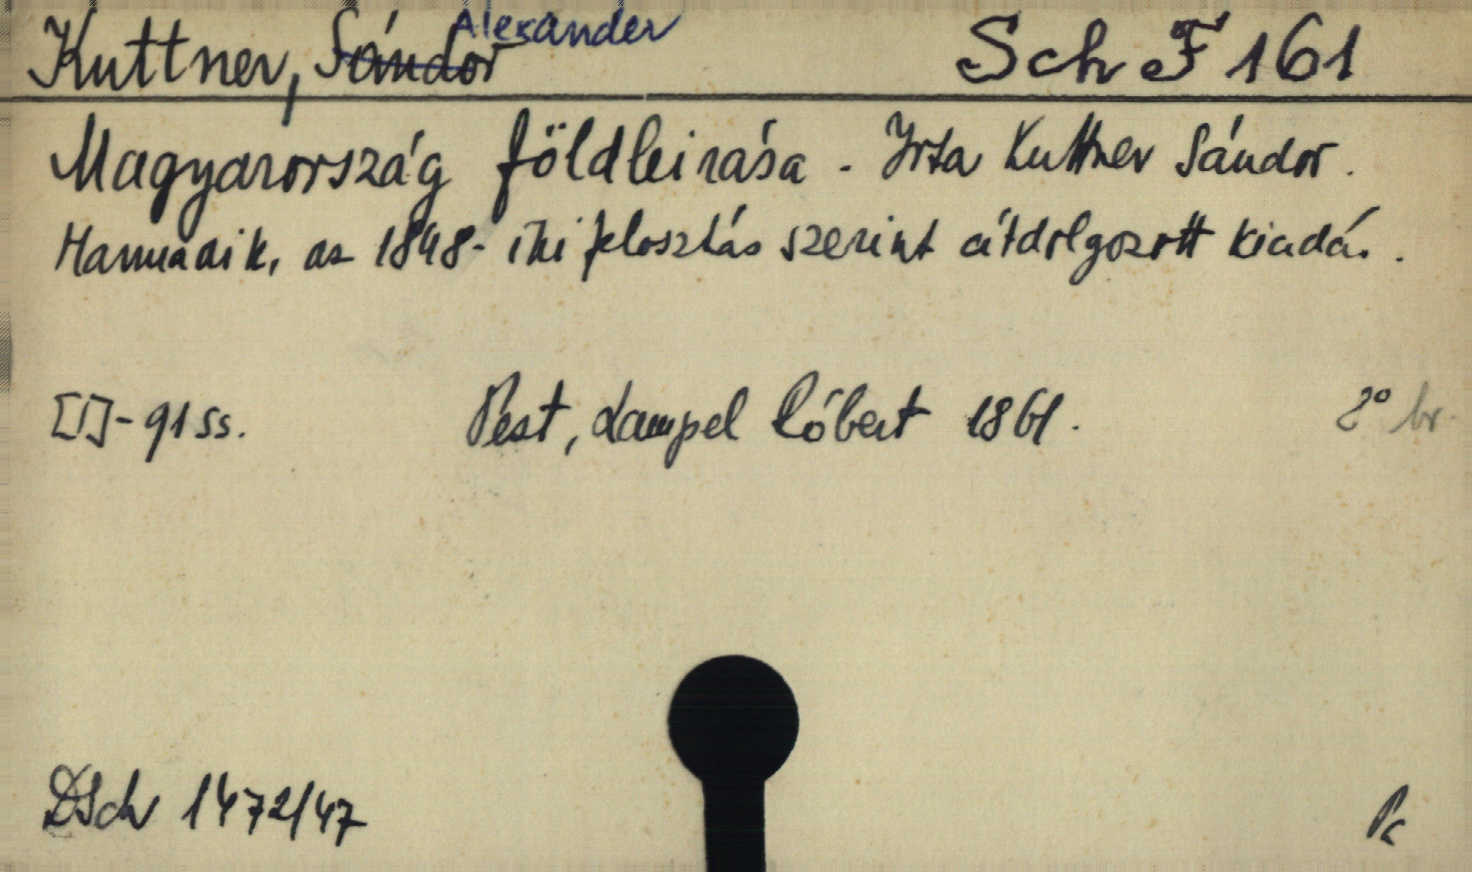 Kuttner, Sándor Alexander Sch F 161
Magyarország földleirása. Irta Kuttner Sándor.
Harmadik, az 1848-iki felosztás szerint átdolgozott kiadás.
[1]-91 ss. Pest, Lampel Róbert 1861. 2° br.
DSch 1472/47